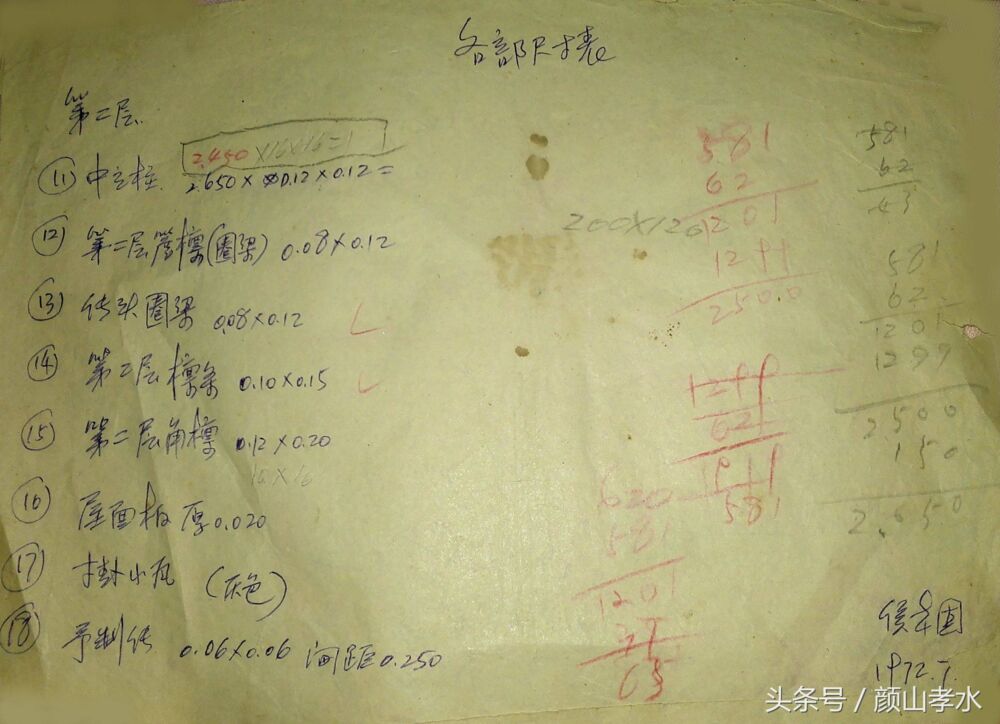 各部尺寸表
第二层
2.450×16×16=1
(11) 中立柱 2.650×0.12×0.12=
(12) 第二层管檩(圈梁) 0.08×0.12
(13) 传头圈梁 0.08×0.12
(14) 第二层檩条 0.10×0.15
(15) 第二层角檩 0.12×0.20
16×16
(16) 屋面板 厚0.020
(17) 挂小瓦 (灰色)
(18) 予制传 0.06×0.06 间距0.250
200×120
581
62
1201
1299
2500
620
581
1201
63
581
62
43
581
62
1201
1299
2500
150
2.650
1972.
头条号/颜山孝水